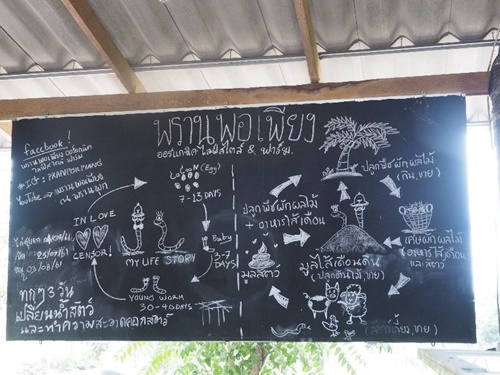 พรานพอเพียง
ออร์แกนิคไลฟ์สไตล์ & ฟาร์ม.
facebook :
พรานพอเพียง ออร์แกนิค
ไลฟ์สไตล์ ฟาร์ม
YouTube → พรานพอเพียง
IN LOVE
CENSOR!
(Egg)
7-13 DAYS
Baby
3-7
DAYS
MY LIFE STORY
YOUNG WORM
30-40 DAYS
ทุกๆ 3 วัน
เปลี่ยนน้ำสัตว์
และทำความสะอาดคอกสัตว์
ปลูกพืชผักผลไม้
(กิน, ขาย)
ปลูกพืชผักผลไม้
+ อาหารไส้เดือน
เศษผักผลไม้
อาหารไส้เดือน
และสัตว์
มูลสัตว์
มูลไส้เดือนดิน